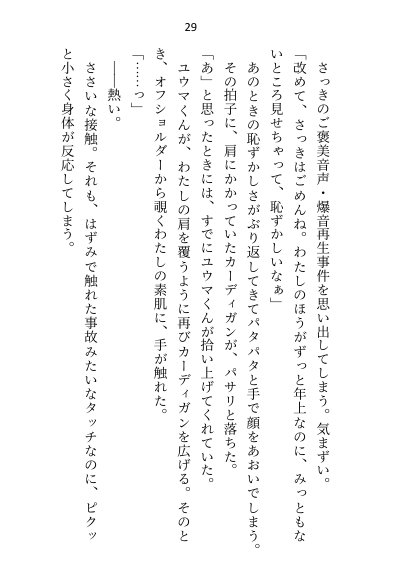 29
さっきのご褒美音声・爆音再生事件を思い出してしまう。気まずい。
「改めて、さっきはごめんね。わたしのほうがずっと年上なのに、みっともな
いところ見せちゃって、恥ずかしいなぁ」
あのときの恥ずかしさがぶり返してきてパタパタと手で顔をあおいでしまう。
その拍子に、肩にかかっていたカーディガンが、パサリと落ちた。
「あ」と思ったときには、すでにユウマくんが拾い上げてくれていた。
ユウマくんが、わたしの肩を覆うように再びカーディガンを広げる。そのと
き、オフショルダーから覗くわたしの素肌に、手が触れた。
「……っ」
――熱い。
ささいな接触。それも、はずみで触れた事故みたいなタッチなのに、ピクッ
と小さく身体が反応してしまう。